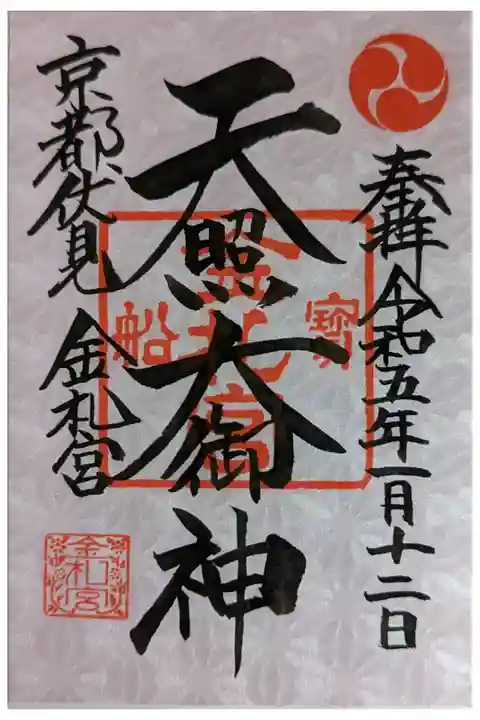 奉拝 令和五年一月十二日
天照大御神
寶 金札宮 船
京都伏見 金札宮
金札宮